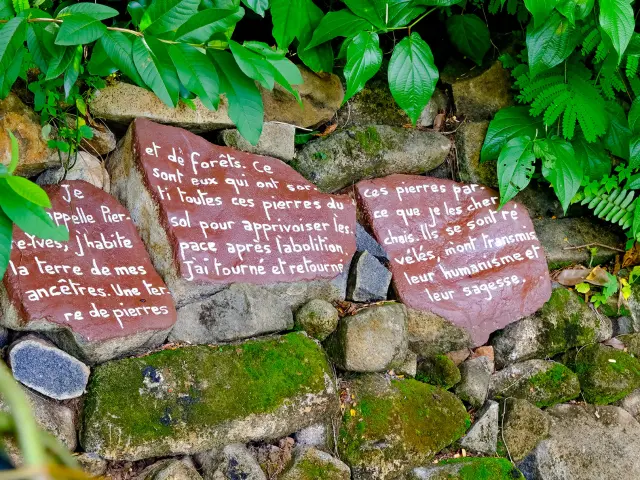 Je
m'appelle Pier-
re-Yves, j'habite
la terre de mes
ancêtres. Une ter-
re de pierres
et de forêts. Ce
sont eux qui ont sor-
ti toutes ces pierres du
sol pour apprivoiser les-
pace après l'abolition.
J'ai tourné et retourné
ces pierres par-
ce que je les cher
chais. Ils se sont ré
vélés, m'ont transmis
leur humanisme et
leur sagesse.